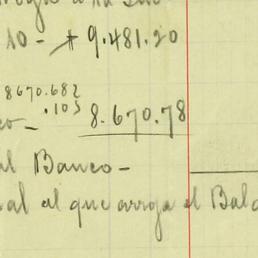 10 - + 9.481.20
8670.682
.103
co- 8.670.78
al Banco-
al al que arroja el Bala